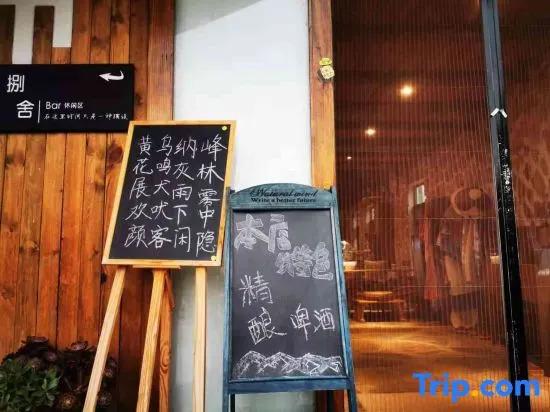 捌舍
Bar 休闲区
在这里时间只是一种摆设
峰林雾中隐
纳灰雨下闲
乌鸣犬吠客
黄花展欢颜
Natural wind
Write a better future
本店
特色
精酿啤酒
Trip.com